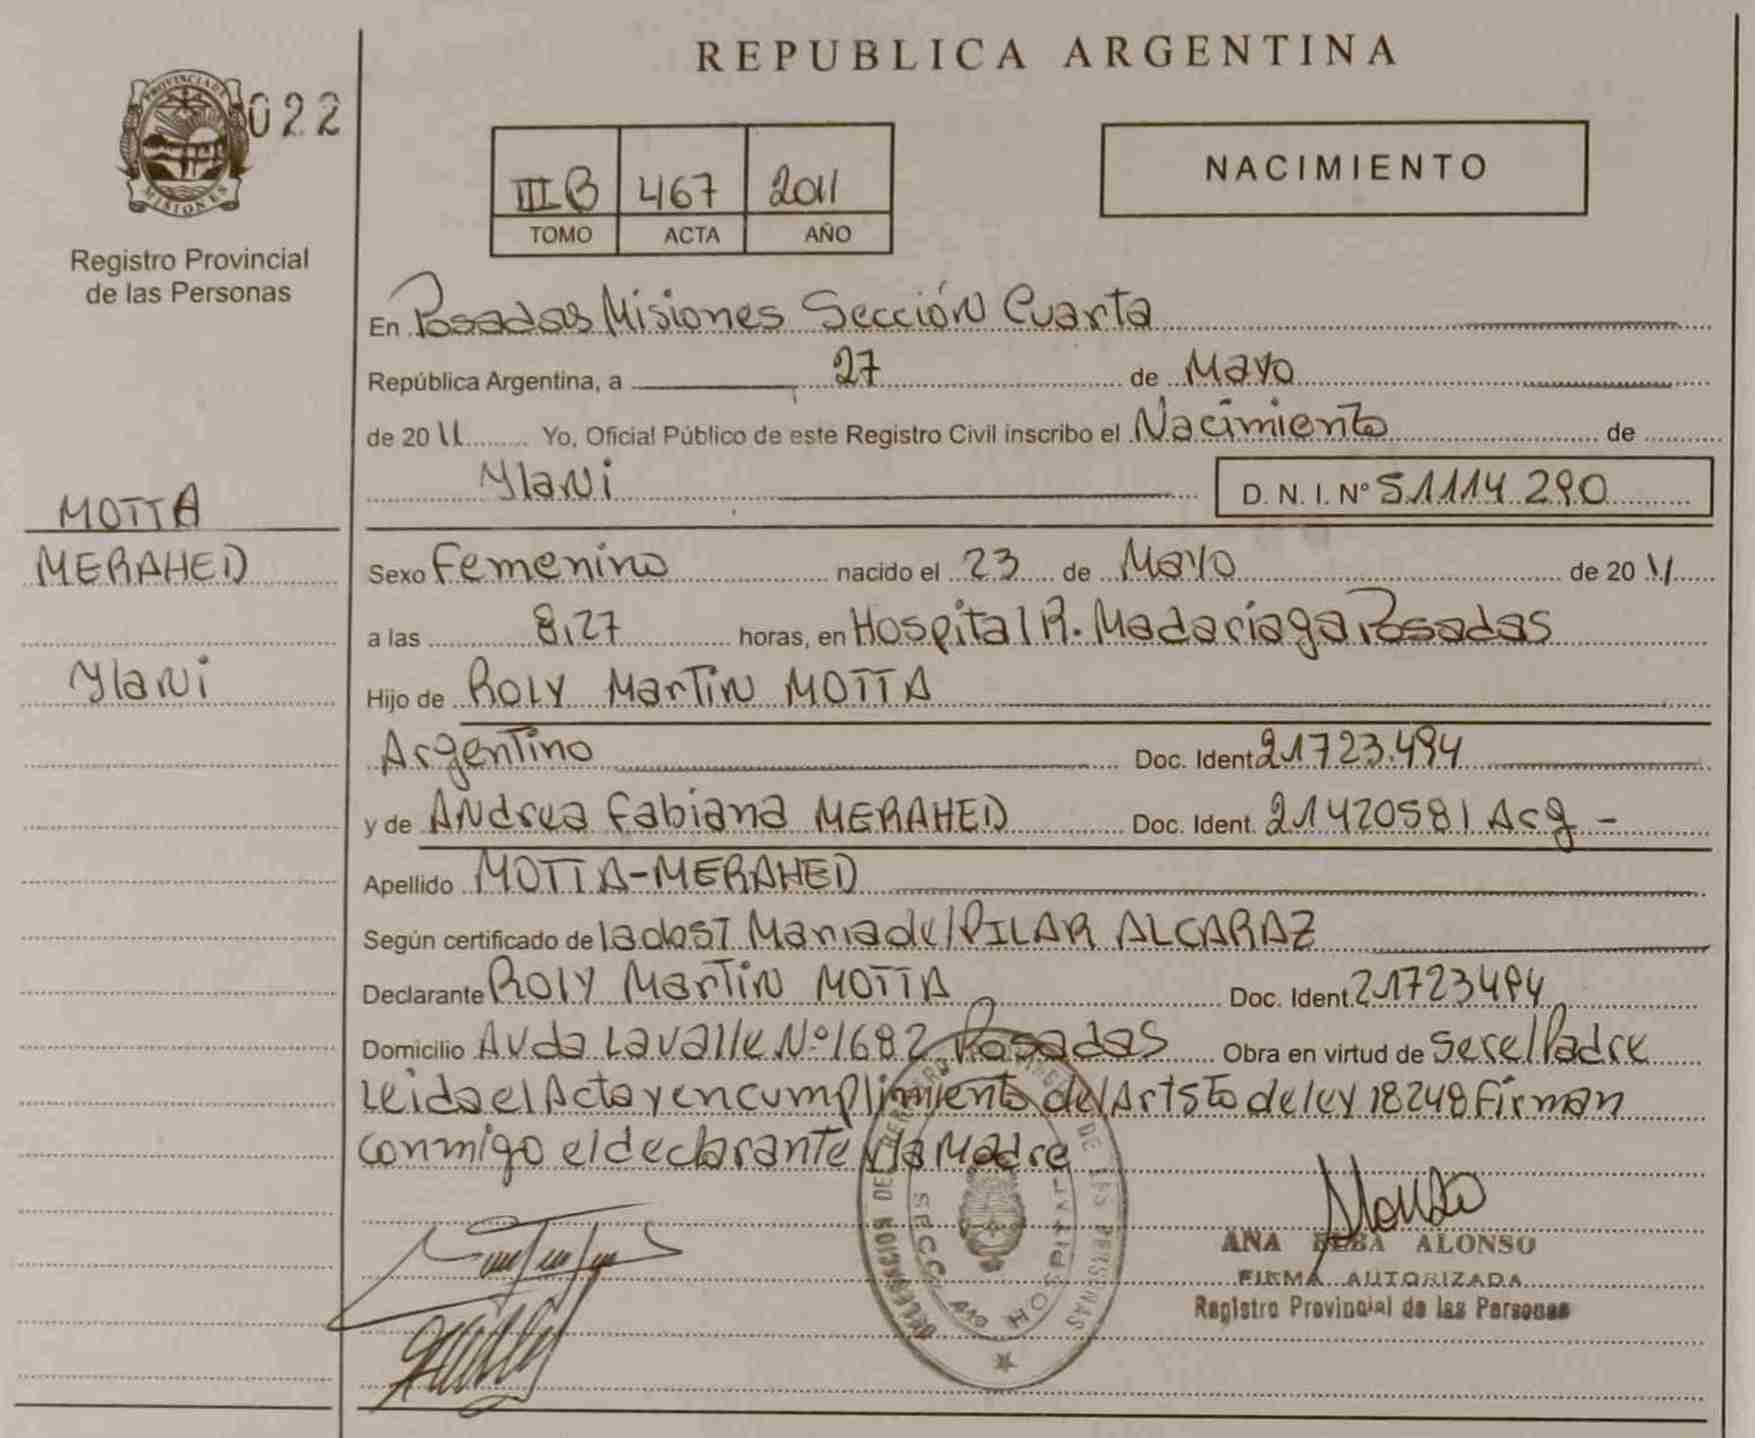 REPUBLICA ARGENTINA
PROVINCIA DE MISIONES
022
Registro Provincial
de las Personas
III B 467 2011
TOMO ACTA AÑO
NACIMIENTO
En Posadas Misiones Sección Cuarta
República Argentina, a 27 de Mayo
de 2011 Yo, Oficial Público de este Registro Civil inscribo el Nacimiento de
Ylani D. N. I. Nº 51114290
MOTTA
MERAHED
Ylani
Sexo Femenino nacido el 23 de Mayo de 2011
a las 8,27 horas, en Hospital R. Madariaga Posadas
Hijo de Roly Martin MOTTA
Argentino Doc. Ident. 21723.494
y de Andrea Fabiana MERAHED Doc. Ident. 21420581 Arg -
Apellido MOTTA-MERAHED
Según certificado de la obst Maria del PILAR ALCARAZ
Declarante Roly Martin MOTTA Doc. Ident. 21723494
Domicilio Avda Lavalle Nº 1682 Posadas Obra en virtud de ser el Padre
Leida el Acta y en cumplimiento del Art 5to de ley 18248 Firman
conmigo el declarante y la Madre
DE LAS PERSONAS
SECC. 4ta HOSPITAL
ANA ELBA ALONSO
FIRMA AUTORIZADA
Registro Provincial de las Personas